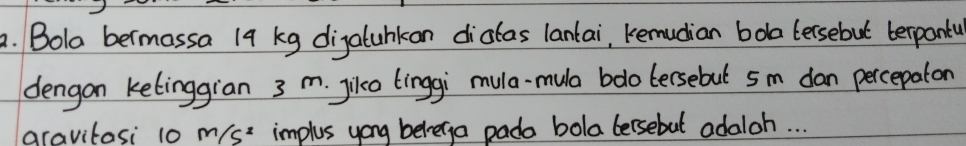 2. Bola bermassa 19 kg dijatuhkan diatas lantai, kemudian bola tersebut terpantul
dengan ketinggian 3 m. jika tinggi mula-mula bola tersebut 5 m dan percepatan
gravitasi 10 m/s² implus yang bekerja pada bola tersebut adalah ...